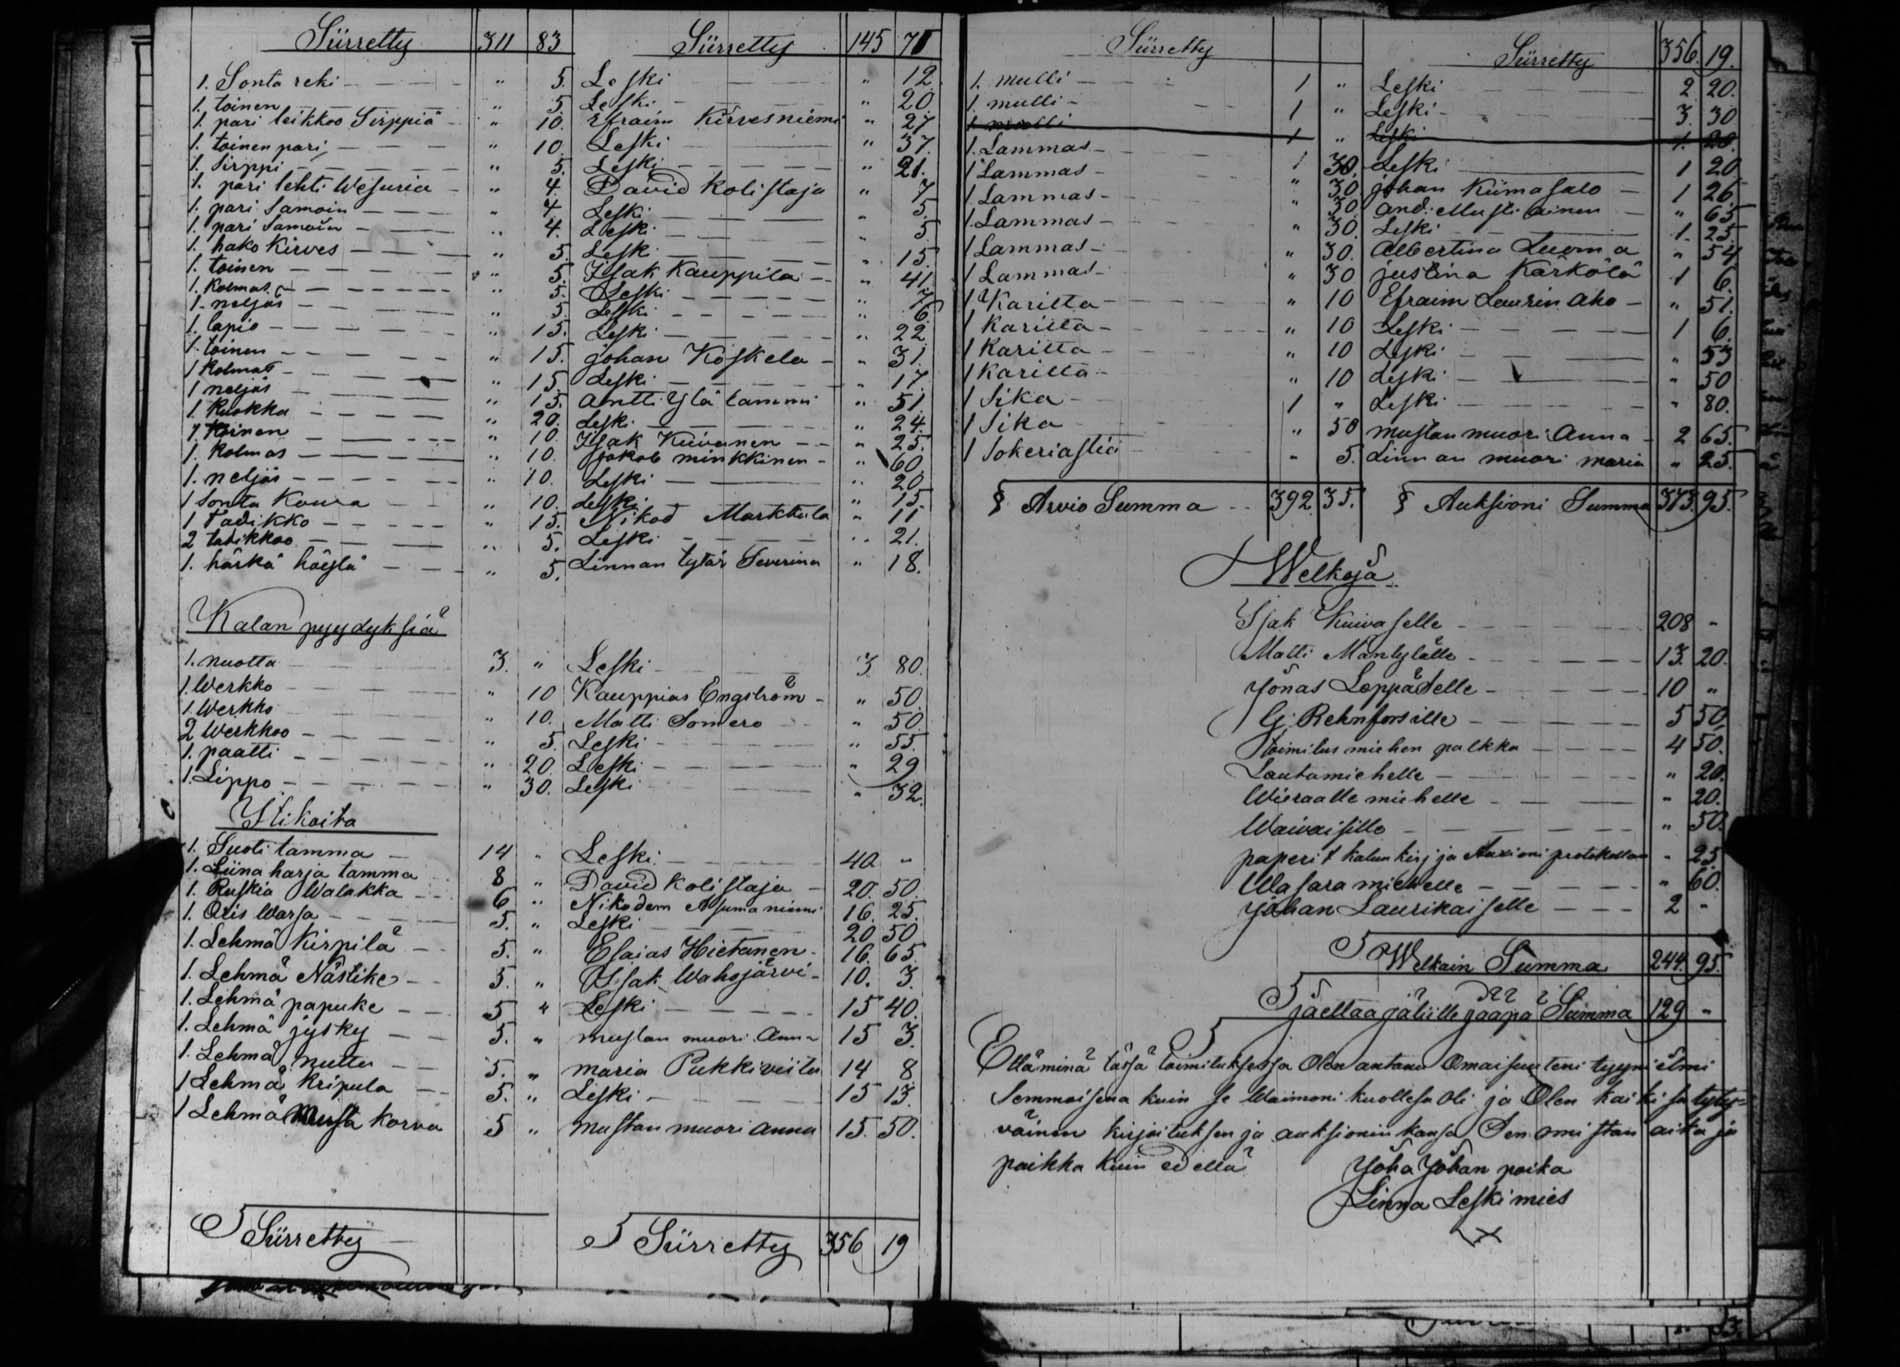 Siirretty 311 83 Siirretty 145 71
1. Sonta reki " 5. Leski " 12.
1. toinen " 5 Leski " 20
1. pari leikkoo Sirppiä " 10. Efraim Kirvesniemi " 27
1. toinen pari " 10. Leski " 37.
1. Sirppi " 5. Leski " 21.
1. pari lehti Wesuria " 4. David Kolistaja " 7
1. pari Samoin " 4. Leski " 5
1. pari Samoin " 4. Leski " 5
1. hako Kirves " 5. Leski " 15
1. toinen " 5 Isak Kauppila " 41
1. Kolmas " 5. Leski " 7
1. neljäs " 5 Leski " 6.
1. lapio " 15. Leski " 22.
1. toinen " 15. Johan Koskela " 31.
1 Kolmas " 15 Leski " 17.
1 neljäs " 15. Antti Ylä tammi " 51.
1. Kuokka " 20. Leski " 24.
1. toinen " 10. Isak Kuivanen " 25.
1. Kolmas " 10. Jakob minkkinen " 60.
1. neljäs " 10. Leski " 20
1 Sonta Koura " 10. Leski " 15
1 Tadikko " 15. Nikod Markkula " 11
2 tadikkoo " 5. Leski " 21.
1. härkä häystä " 5. Linnan tytär Severina " 18.
Kalan pyydyksiä
1. nuotta 3. " Leski 3 80.
1. Werkko " 10 Kauppias Engström " 50.
1. Werkko " 10. Matti Somero " 50
2 Werkkoo " 5. Leski " 55.
1. paatti " 20. Leski " 29
1. Lippo " 30. Leski " 32.
Itikoita
1. Suoti tamma 14 " Leski 40 "
1. Liina harja tamma 8 " David Kolistaja 20. 50.
1. Ruskia Walakka 6 " Nikodem Asumaniemi 16. 25.
1. Oris Warsa 5. " Leski 20 50
1. Lehmä Kirpilä 5. " Esaias Hietanen 16. 65.
1. Lehmä Nästike 5. " Isak Wahojärvi 10. 3.
1. Lehmä papuke 5 " Leski 15 40.
1. Lehmä jysky 5. " mustan muori Anna 15 3.
1. Lehmä nuttu 5. " maria Pukkiviita 14 8
1 Lehmä Kripula 5. " Leski 15 13.
1 Lehmä Musta Korva 5 " mustan muori anna 15. 50.
Siirretty Siirretty 356 19
Siirretty Siirretty 356. 19.
1. mulli 1 " Leski 2 20.
1. mulli 1 " Leski 3. 30
1 mulli 1 " Leski 1. 20.
1. Lammas 1 30. Leski 1 20
1 Lammas " 30. Johan Kiimasalo 1 26.
1 Lammas " 30 And. Mustiainen " 65
1. Lammas " 30. Leski 1. 25
1 Lammas " 30. Albertina Luoma " 54
1 Lammas " 30 justina Kärkölä 1 6.
1 Karitta " 10 Efraim Laurin Aho " 51.
1 Karitta " 10 Leski 1 6.
1 Karitta " 10 Leski " 53
1 Karitta " 10 Leski " 50
1 Sika 1 " Leski " 80.
1 Sika " 50 Mustan muori Anna 2 65.
1 Sokeriastia " 5. Linnan muori maria " 25.
§ Arvio Summa 392. 35. § Auksioni Summa 373. 95.
Welkoja
Isak Kuivaselle 208 "
Matti Mäntylälle 13. 20.
Jonas Leppäselle 10 "
G. Rehnforsille 5 50.
Toimitus miehen palkka 4 50.
Lautamiehelle " 20.
Wieraalle miehelle " 20.
Waivaisille " 50
paperit kalun kirj ja Auxioni protokollan " 25.
Wasara miehelle " 60.
Johan Laurikaiselle 2 "
Welkain Summa 244. 95.
jaettaa jäliille jääpä Summa 129 "
Että minä tässä toimituksessa Olen antanu Omaisuuteni tyyni esimi
Semmoisena kuin se Waimoni kuollesa Oli ja Olen kaikisa tyty=
väinen kirjoituksen ja auksionin kansa Sen omistan aika ja
paikka kuin edellä
Joha Johan poika
Linna Leskimies
X